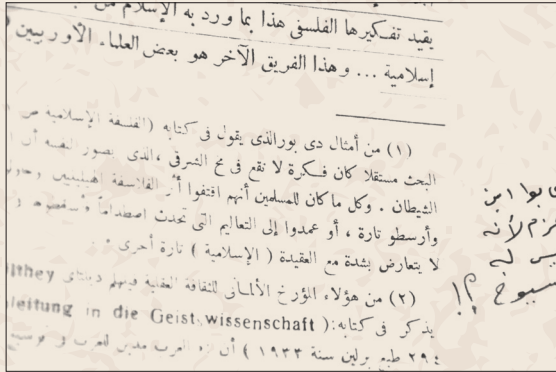 يقيد تفكيرها الفلسفى هذا بما ورد به الإسلام من
إسلامية ... وهذا الفريق الآخر هو بعض العلماء الأوربيين
(١) من أمثال دى بور الذى يقول فى كتابه (الفلسفة الإسلامية ص
البحث مستقلا كان فكرة لا تقع فى مخ الشرقى ، الذى يصور لنفسه أن
الشيطان . وكل ما كان للمسلمين أنهم اقتفوا أثر الفلاسفة
وأرسطو تارة ، أو عمدوا إلى التعاليم التى تحدث اصطداما
لا يتعارض بشدة مع العقيدة ( الإسلامية ) تارة أخرى » .
(٢) من هؤلاء المؤرخ الألمانى للثقافة العقلية فيلهلم ديلتاى lthey
يذكر فى كتابه: ( leitung in die Geist wissenschaft
٢٩٤ طبع برلين سنة ١٩٣٣ ) أن
عابوا ابن
حزم لأنه
ليس له
شيوخ ؟!